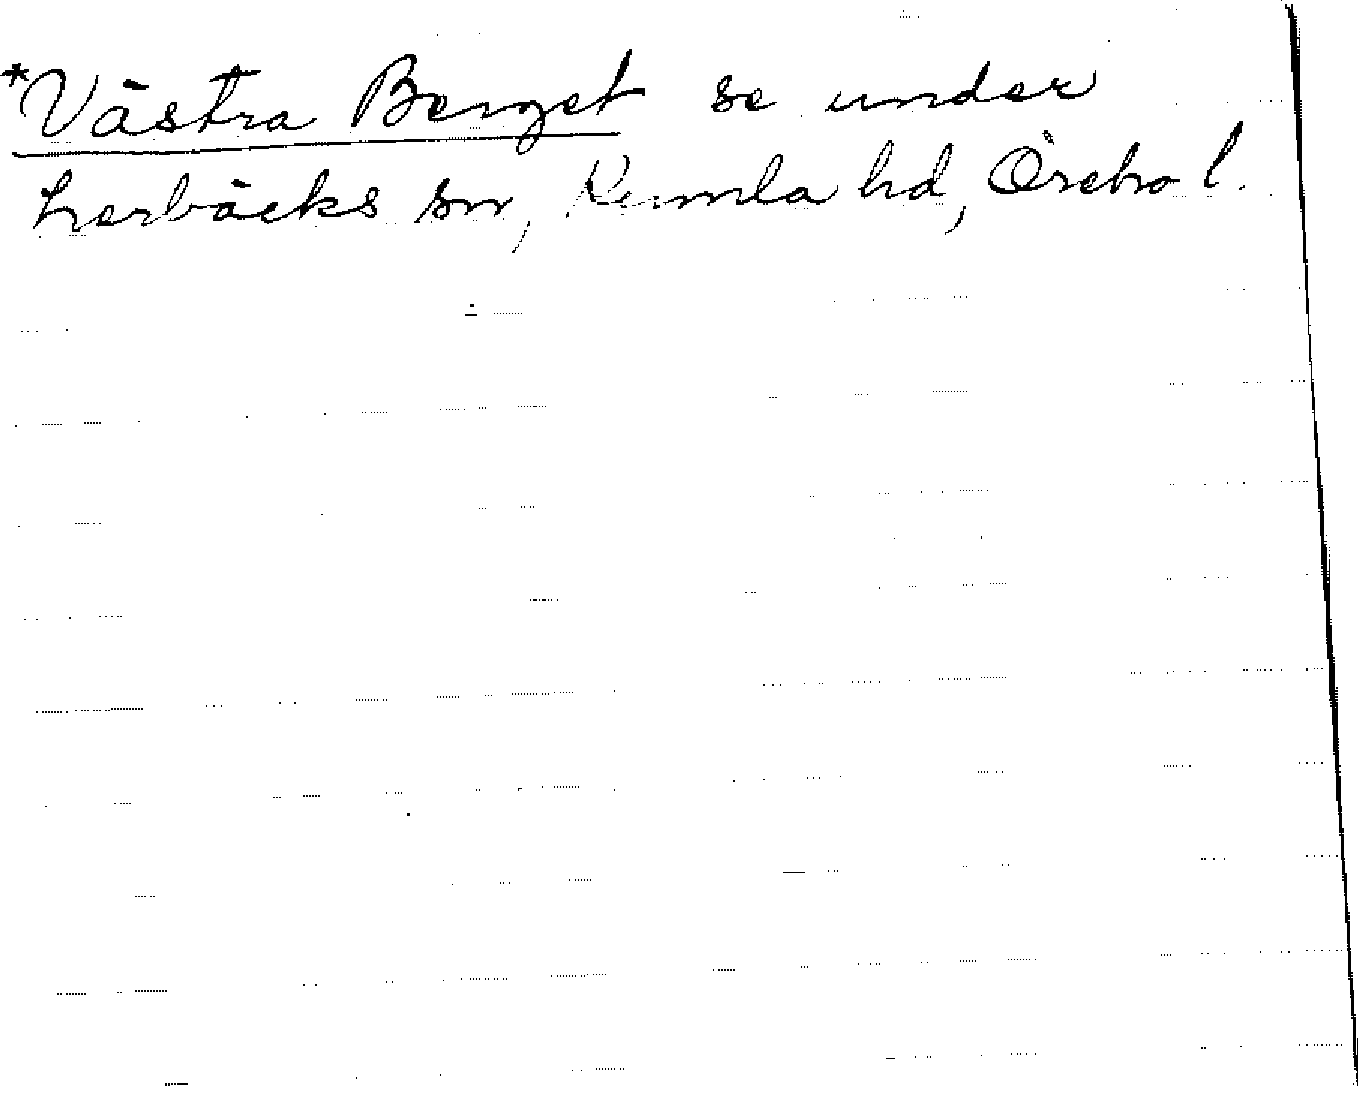 *Västra Berget se under
Lerbäcks sn, Kumla hd, Örebro l.